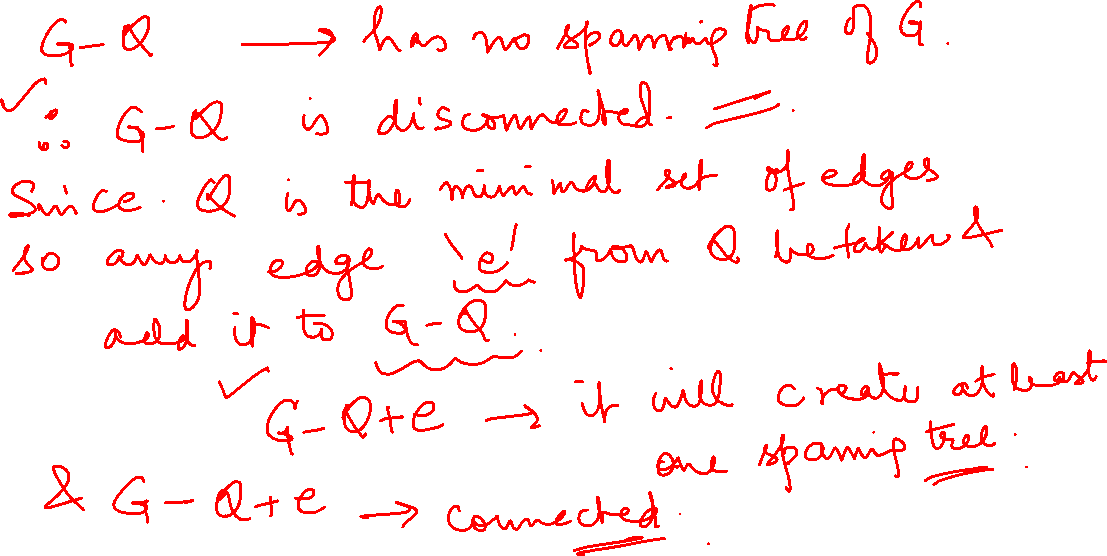 G-Q → has no spanning tree of G.
∴ G-Q is disconnected.
Since Q is the minimal set of edges
so any edge 'e' from Q be taken &
add it to G-Q.
G-Q+e → it will create at least
one spanning tree.
& G-Q+e → connected.